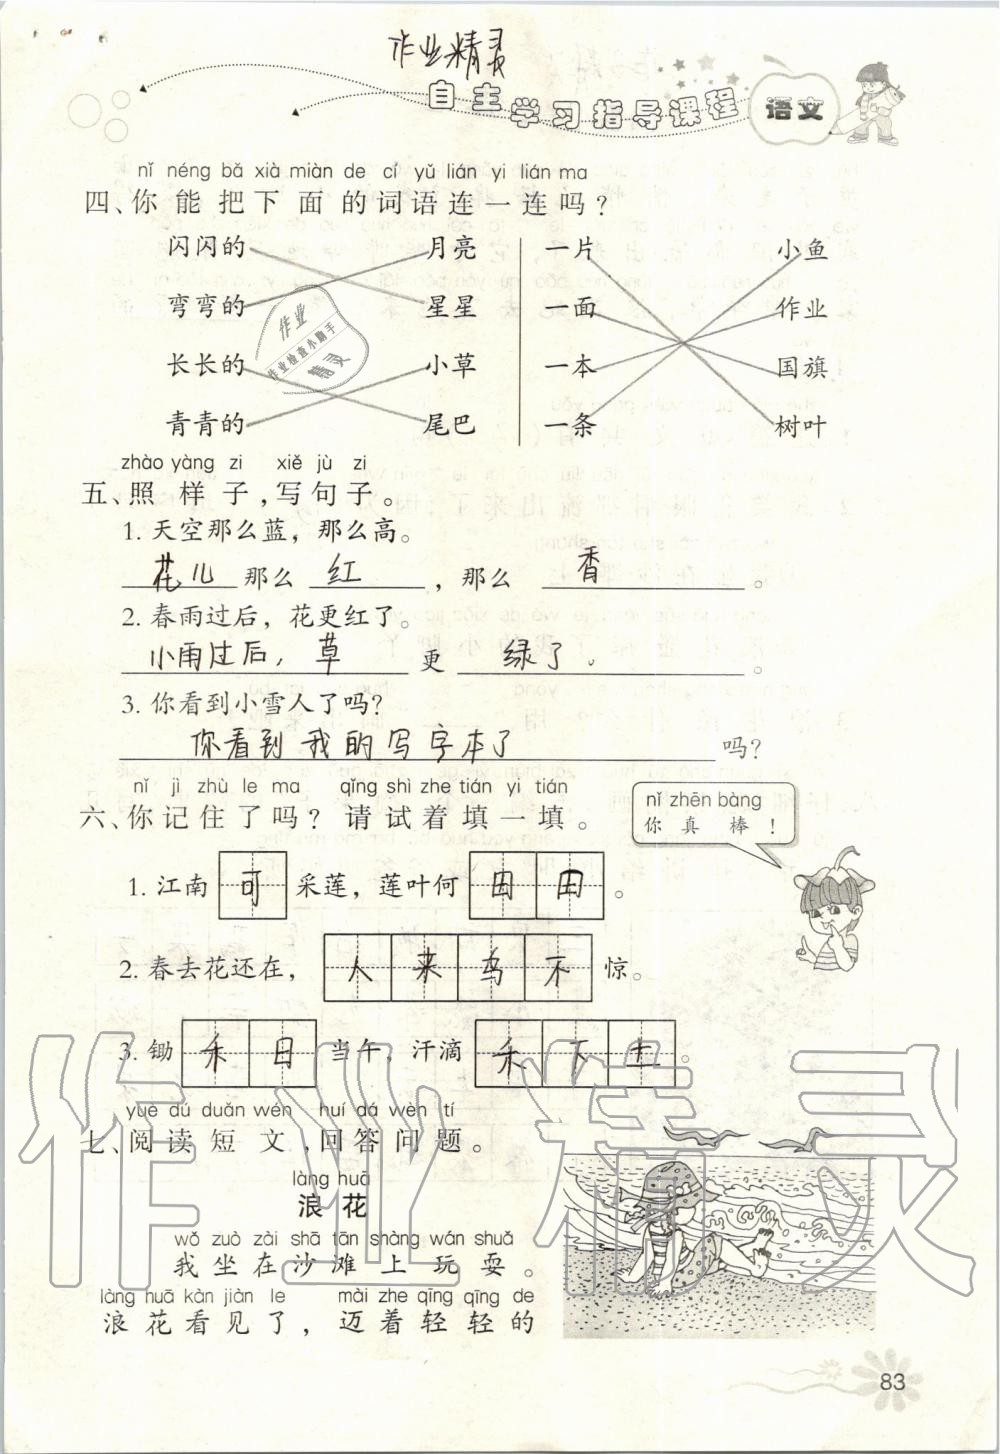 作业精灵
自主学习指导课程 语文
nǐ néng bǎ xià miàn de cí yǔ lián yi lián ma
四、你能把下面的词语连一连吗?
闪闪的 月亮 一片 小鱼
弯弯的 星星 一面 作业
长长的 小草 一本 国旗
青青的 尾巴 一条 树叶
作业
作业检查小助手
精灵
zhào yàng zi xiě jù zi
五、照样子,写句子。
1. 天空那么蓝,那么高。
花儿 那么 红 ,那么 香 。
2. 春雨过后,花更红了。
小雨过后,草 更 绿了 。
3. 你看到小雪人了吗?
你看到我的写字本了 吗?
nǐ jì zhù le ma qǐng shì zhe tián yi tián
六、你记住了吗?请试着填一填。
nǐ zhēn bàng
你真棒!
1. 江南可采莲,莲叶何田田。
2. 春去花还在,人来鸟不惊。
3. 锄禾日当午,汗滴禾下土。
yuè dú duǎn wén huí dá wèn tí
七、阅读短文,回答问题。
làng huā
浪花
wǒ zuò zài shā tān shàng wán shuǎ
我坐在沙滩上玩耍。
làng huā kàn jiàn le mài zhe qīng qīng de
浪花看见了,迈着轻轻的
作业精灵
83